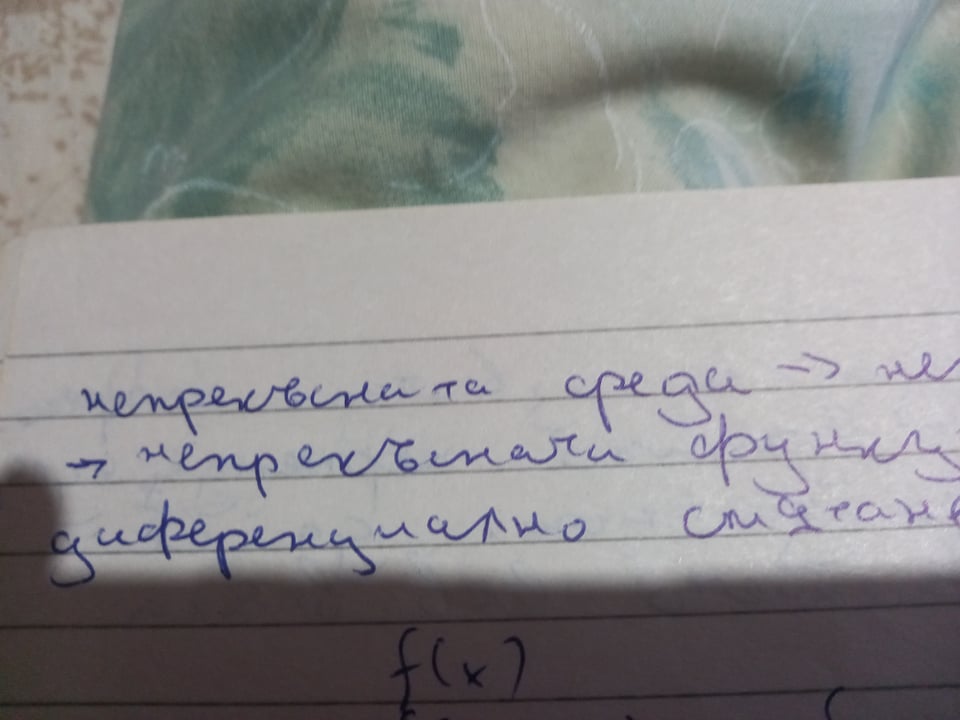 непрекъсната среда → не
→ непрекъснати функц
диференциално смятан
f(x)